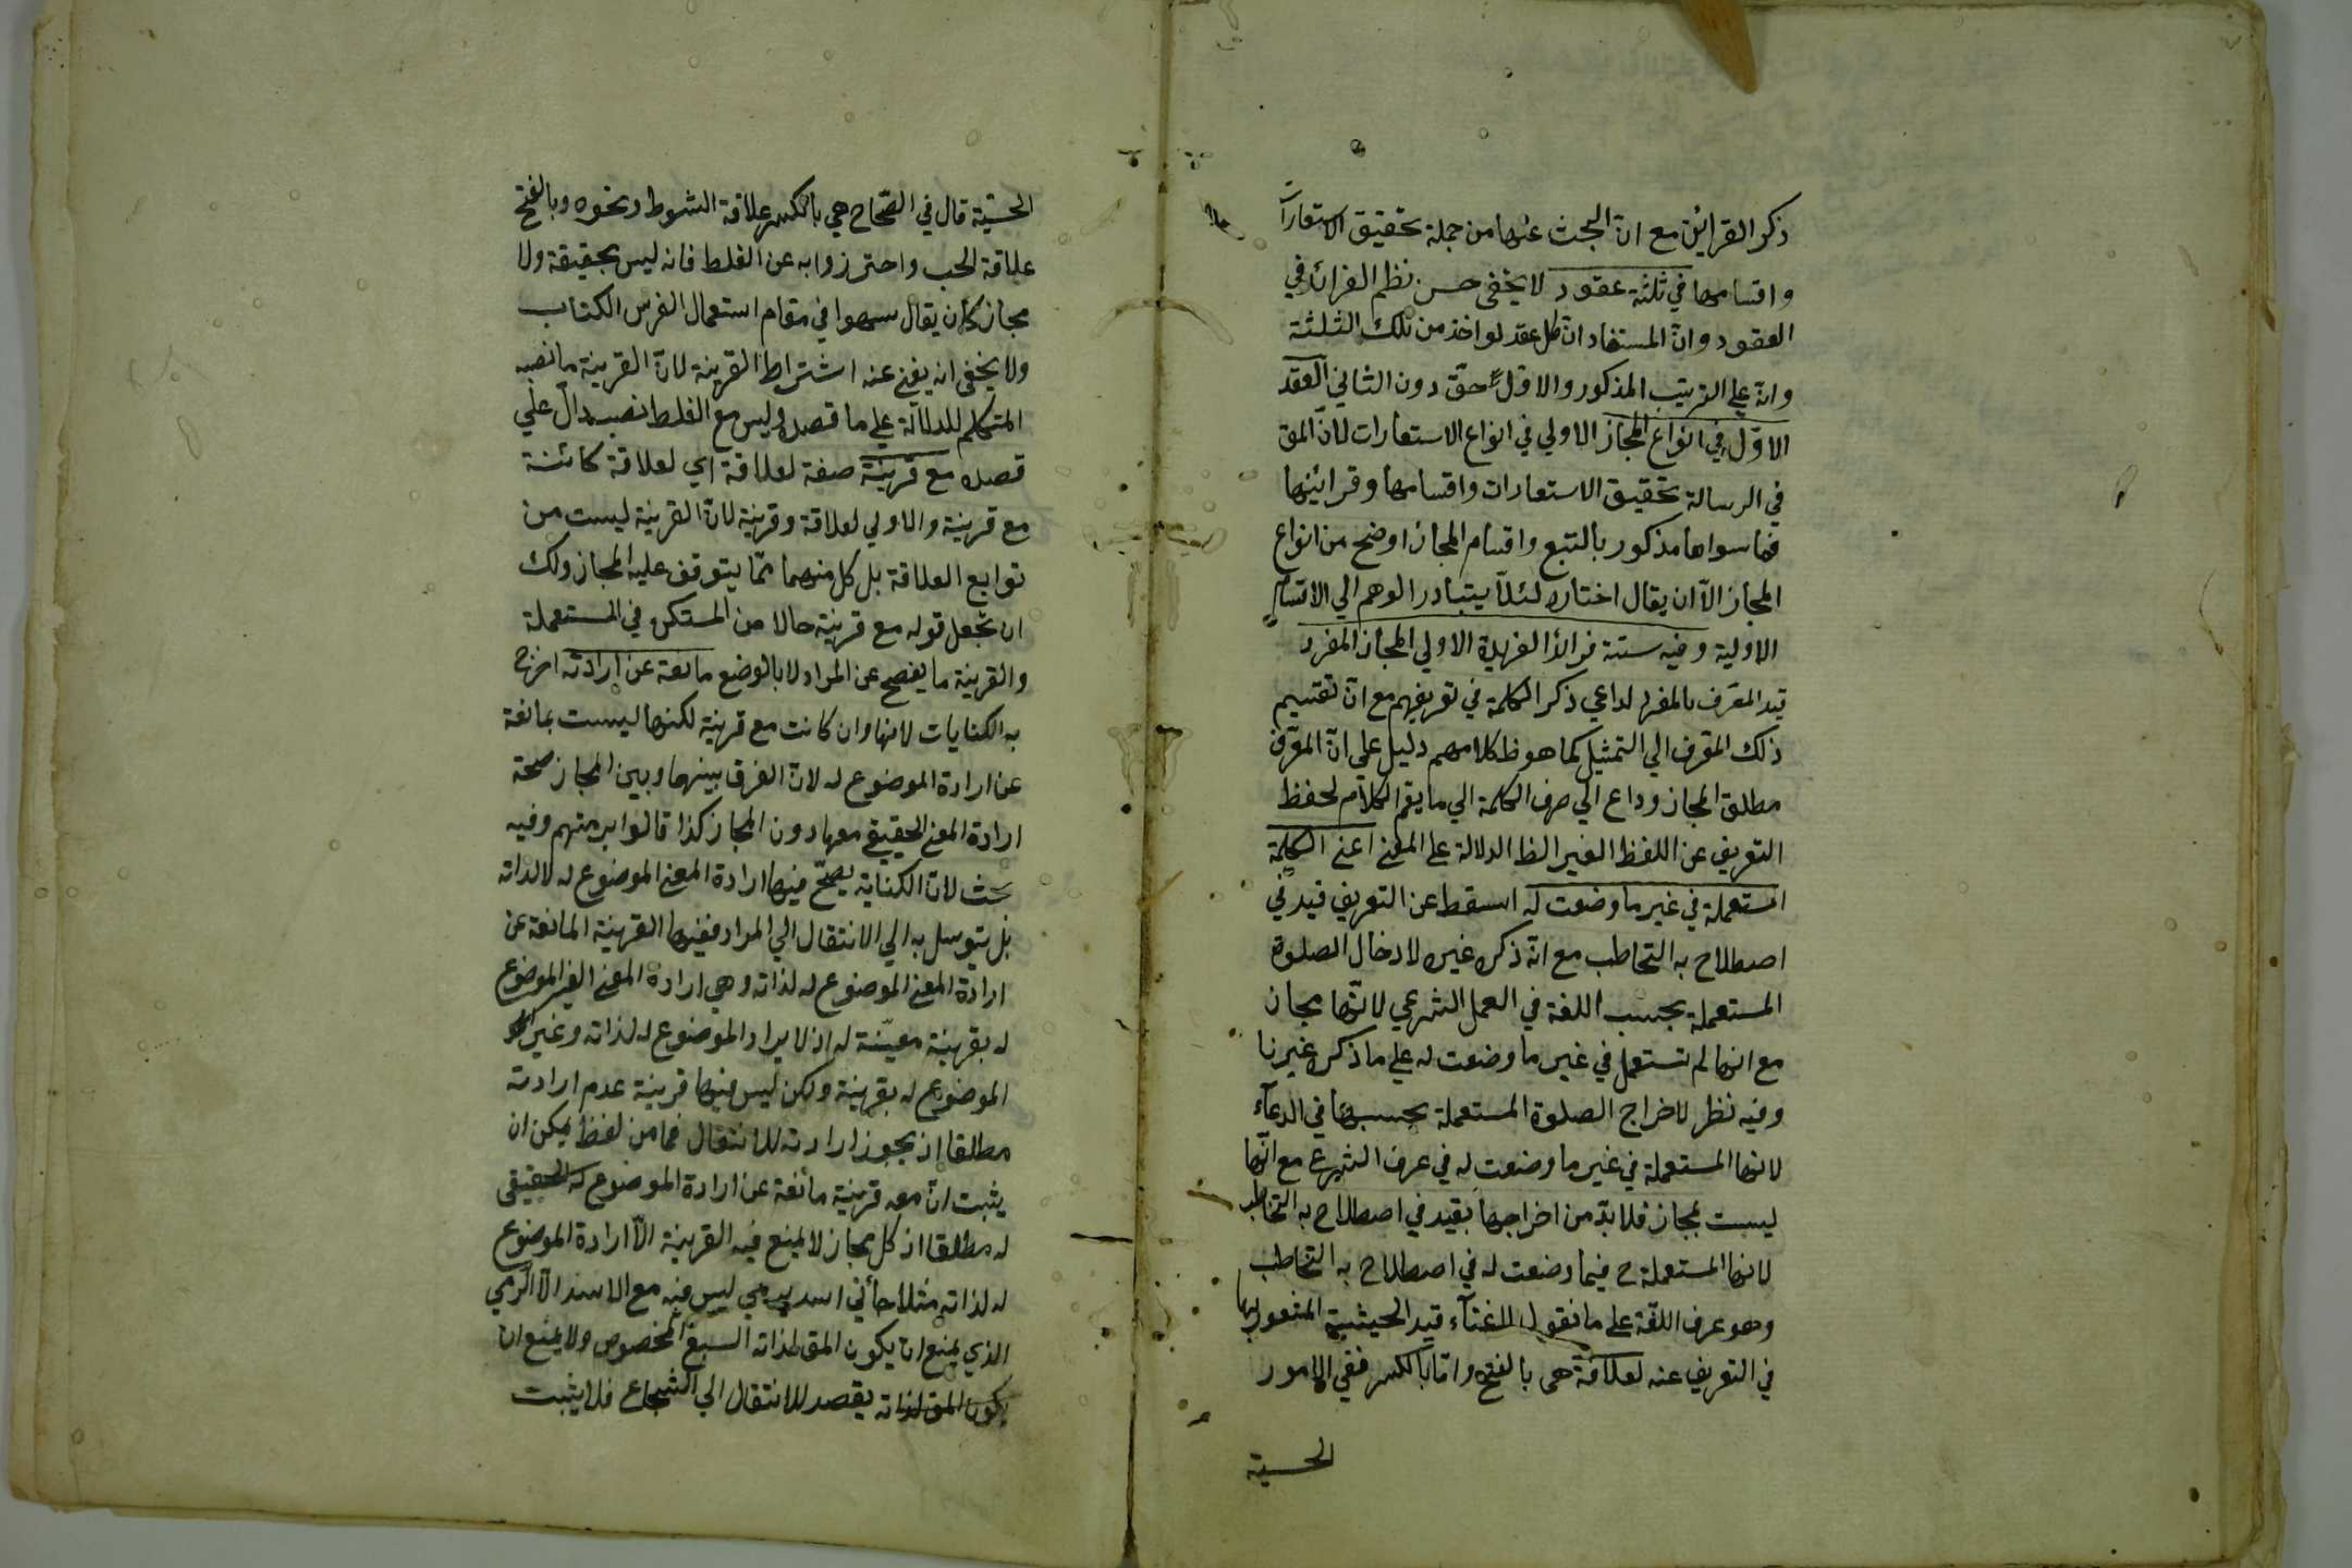 ذكر القرائن مع ان البحث عنها من جملة تحقيق الاستعارات
واقسامها في ثلثة عقود لا يخفى حسن نظم الفرائد في
العقود وان المستفاد ان كل عقد لواخذ من تلك الثلثة
وانه علي الترتيب المذكور والاول حق دون الثاني العقد
الاول في انواع المجاز الاولي في انواع الاستعارات لان المق
في الرسالة تحقيق الاستعارات واقسامها وقرائنها
فما سواها مذكور بالتبع واقسام المجاز اوضح من انواع
المجاز الا ان يقال اختاره لئلا يتبادر الوهم الي الاقسام
الاولية وفيه ستة فرائد الفريدة الاولي المجاز المفرد
قيد المعرف بالمفرد لداعي ذكر الكلمة في تعريفهم مع ان تقسيم
ذلك المعرف الي التمثيل كما هو ظ كلامهم دليل علي ان المعرف
مطلق المجاز وداع الي صرف الكلمة الي ما يعم الكلام لحفظ
التعريف عن اللفظ الغير الظ الدلالة علي المعنى اعني الكلمة
المستعملة في غير ما وضعت له اسقط عن التعريف قيد في
اصطلاح به التخاطب مع انه ذكره غيره لادخال الصلوة
المستعملة بحسب اللغة في العمل الشرعي لانها مجاز
مع انها لم تستعمل في غير ما وضعت له علي ما ذكره غيرنا
وفيه نظر لاخراج الصلوة المستعملة بحسبها في الدعاء
لانها المستعملة في غير ما وضعت له في عرف الشرع مع انها
ليست بمجاز فلا بد من اخراجها بقيد في اصطلاح به التخاطب
لانها المستعملة ح فيما وضعت له في اصطلاح به التخاطب
وهو عرف اللغة علي ما نقول للغناء قيد الحيثية المنعول بها
في التعريف عنه لعلاقة هي بالفتح واما بالكسر ففي الامور
الحسية
الحسية قال في الصحاح هي بالكسر علاقة السوط ونحوه وبالفتح
علاقة الحب واحترزوا به عن الغلط فانه ليس بحقيقة ولا
مجاز كان يقال سهوا في مقام استعمال الفرس الكتاب
ولا يخفى انه يغني عنه اشتراط القرينة لان القرينة ما نصبه
المتكلم للدلالة علي ما قصده وليس مع الغلط نصب دال علي
قصده مع قرينة صفة لعلاقة اي لعلاقة كائنة
مع قرينة والاولي لعلاقة وقرينة لان القرينة ليست من
توابع العلاقة بل كل منهما مما يتوقف عليه المجاز ولك
ان تجعل قوله مع قرينة حالا من المستكن في المستعملة
والقرينة ما يفصح عن المراد لا بالوضع مانعة عن ارادته اخرج
به الكنايات لانها وان كانت مع قرينة لكنها ليست بمانعة
عن ارادة الموضوع له لان الفرق بينها وبين المجاز صحة
ارادة المعنى الحقيقي معها دون المجاز كذا قالوا برمتهم وفيه
بحث لان الكناية يصح فيها ارادة المعنى الموضوع له لا لذاته
بل يتوسل به الي الانتقال الي المراد ففيها القرينة المانعة عن
ارادة المعنى الموضوع له لذاته وهي ارادة المعنى الغير الموضوع
له بقرينة معينة له اذ لا يراد الموضوع له لذاته وغير
الموضوع له بقرينة ولكن ليس فيها قرينة عدم ارادته
مطلقا اذ يجوز ارادته للانتقال فما من لفظ يمكن ان
يثبت ان معه قرينة مانعة عن ارادة الموضوع له الحقيقي
له مطلقا اذ كل مجاز لا يمنع فيه القرينة الا ارادة الموضوع
له لذاته مثلا جائني اسد يرمي ليس فيه مع الاسد الا الرمي
الذي يمنع ان يكون المق لذاته السبع المخصوص ولا يمنع ان
يكون المق لذاته يقصد للانتقال الي الشجاع فلا يثبت